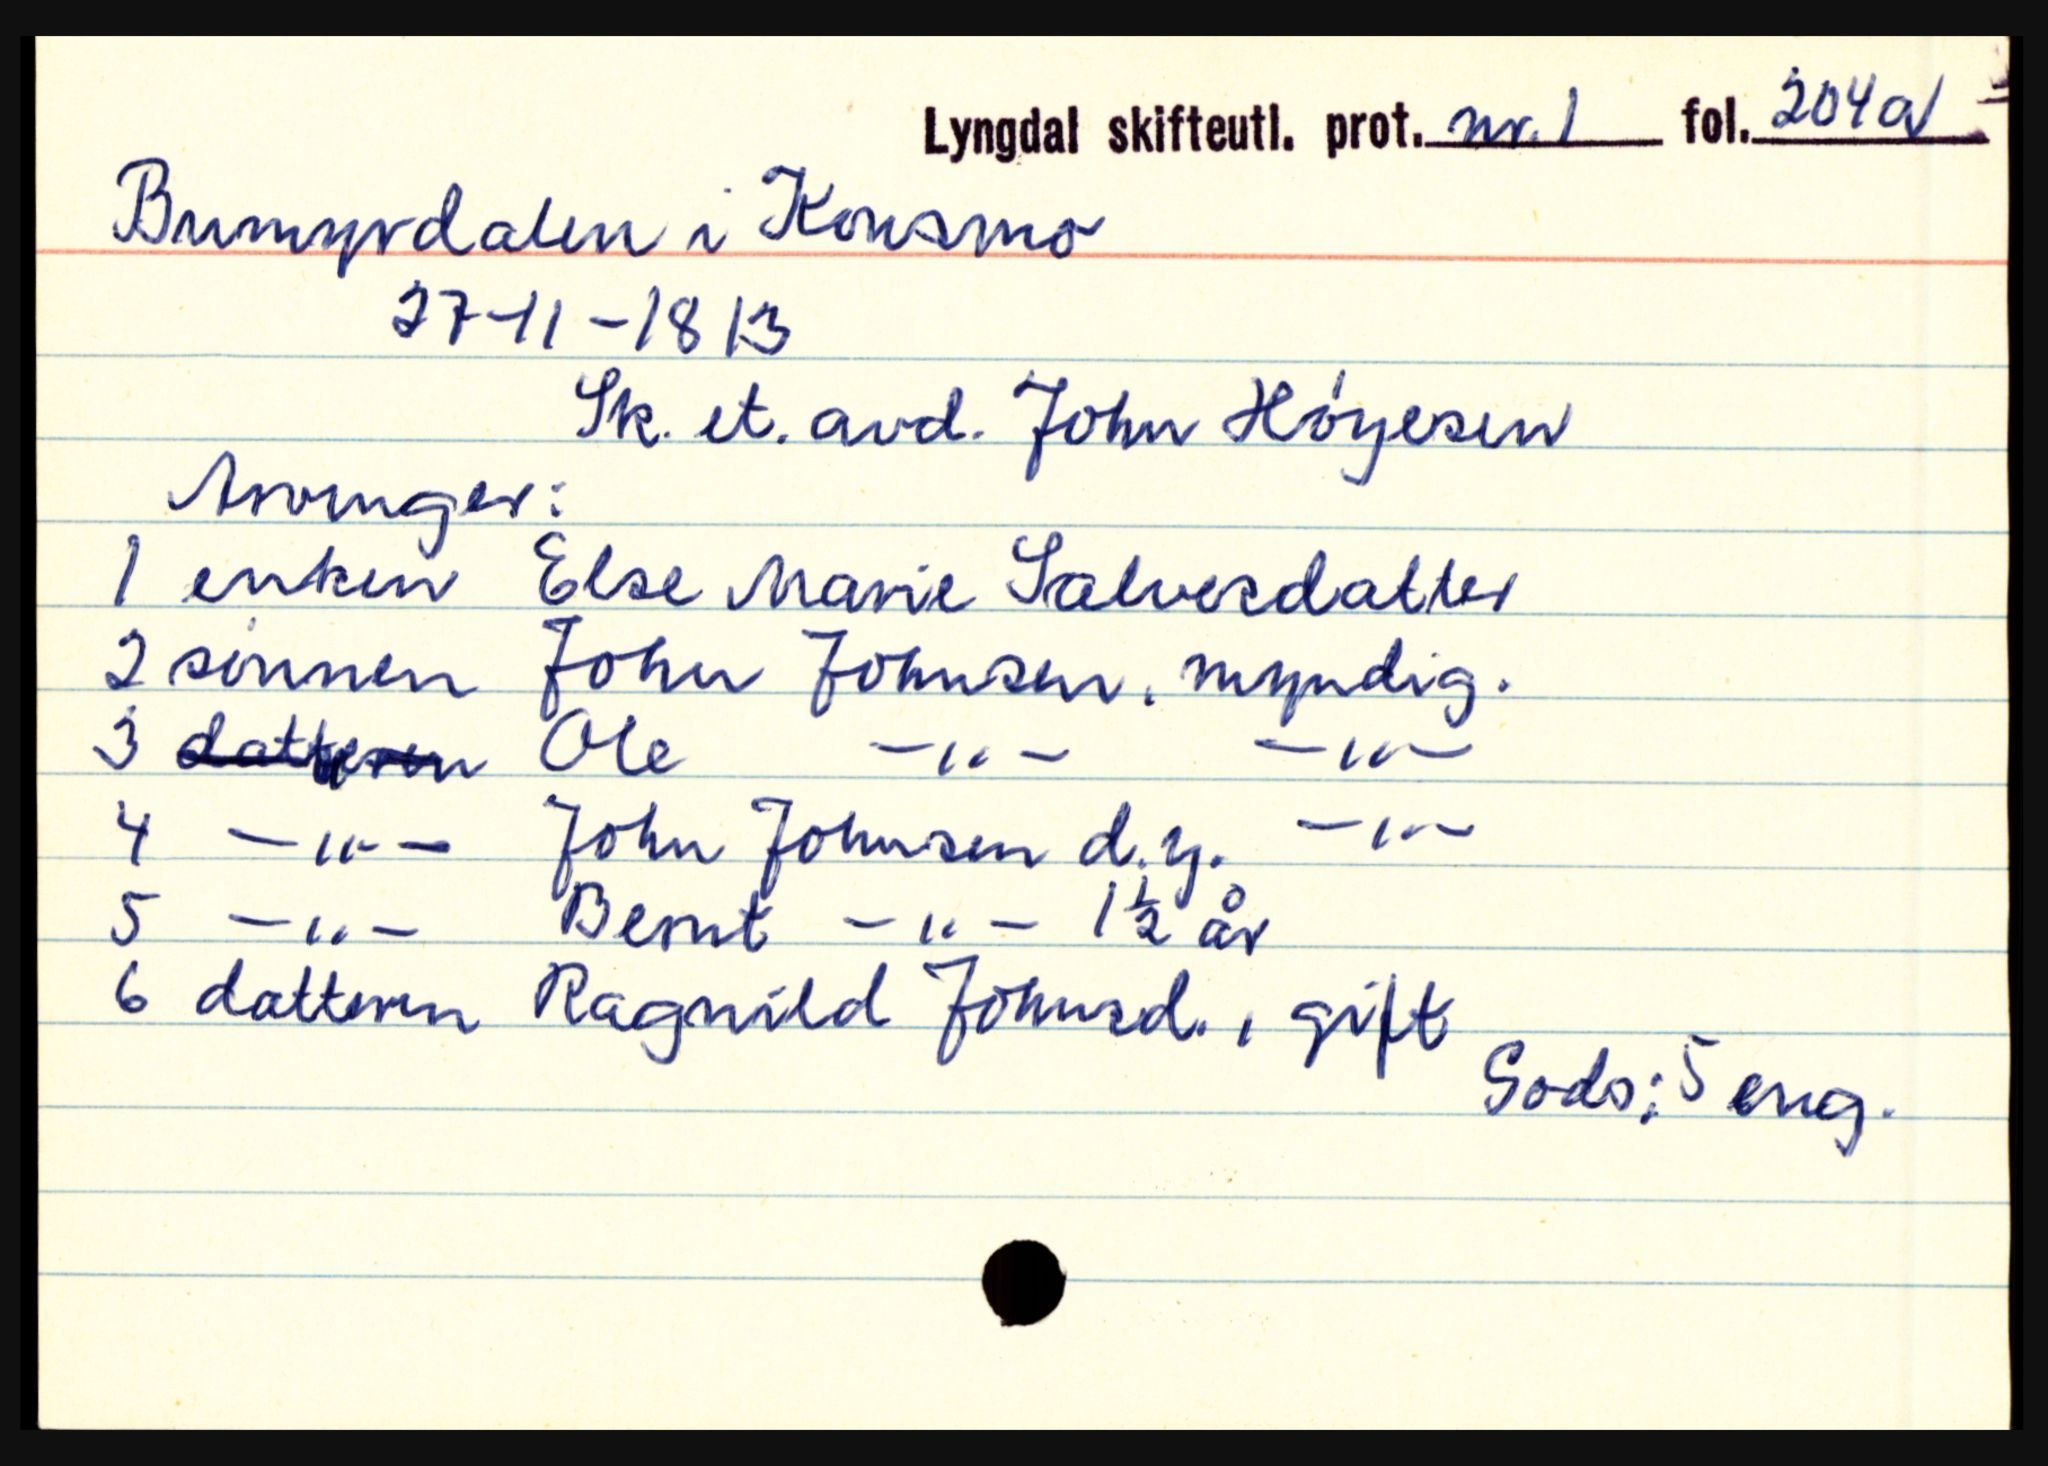 Lyngdal skifteutl. prot. nr. 1 fol. 204a
Bumyrdalen i Konsmo
27-11-1813
Sk. et. avd. John Höyesen
Arvinger:
1 enken Else Marie Salvesdatter
2 sönnen John Johnsen, myndig.
3 ~~datteren~~ Ole -"- -"-
4 -"- John Johnsen d.y. -"-
5 -"- Bernt -"- 1½ år
6 datteren Ragnild Johnsd., gift
Gods: 5 eng.